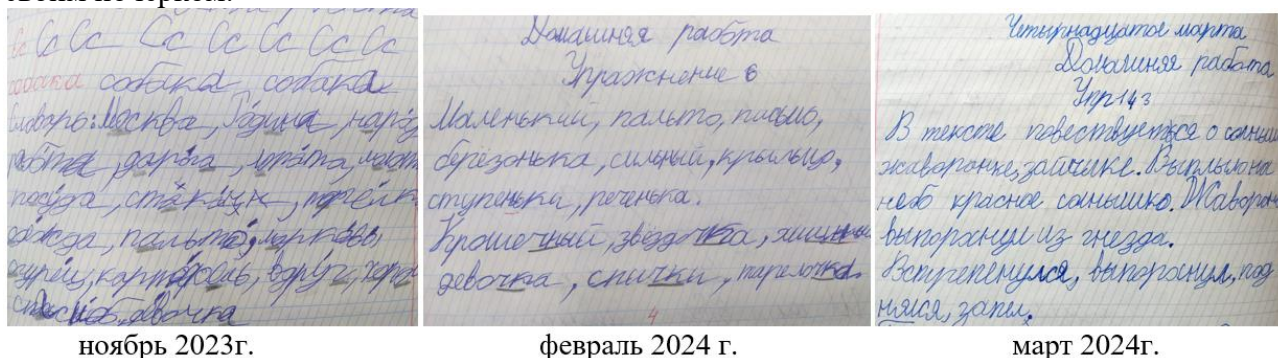 Сс Сс Сс Сс Сс Сс Сс Сс
собака собака собака
Словарь: Москва, Родина, народ,
посуда, стакан, тарелк
одежда, пальто, морковь,
огурец, картофель, вдруг,
девочка
ноябрь 2023г.
Домашняя работа
Упражнение 6
Маленький, пальто, письмо,
берёзонька, сильный, крыльцо,
ступенька, реченька.
Крошечный, звёздочка,
девочка, спички, тарелочка.
4
февраль 2024 г.
Четырнадцатое марта
Домашняя работа
Упр143
В тексте повествуется о солныш
жаворонке, зайчике. Выплыло на
небо красное солнышко. Жаворон
выпорхнул из гнезда.
Встрепенулся, выпорхнул, под
нялся, запел.
март 2024г.